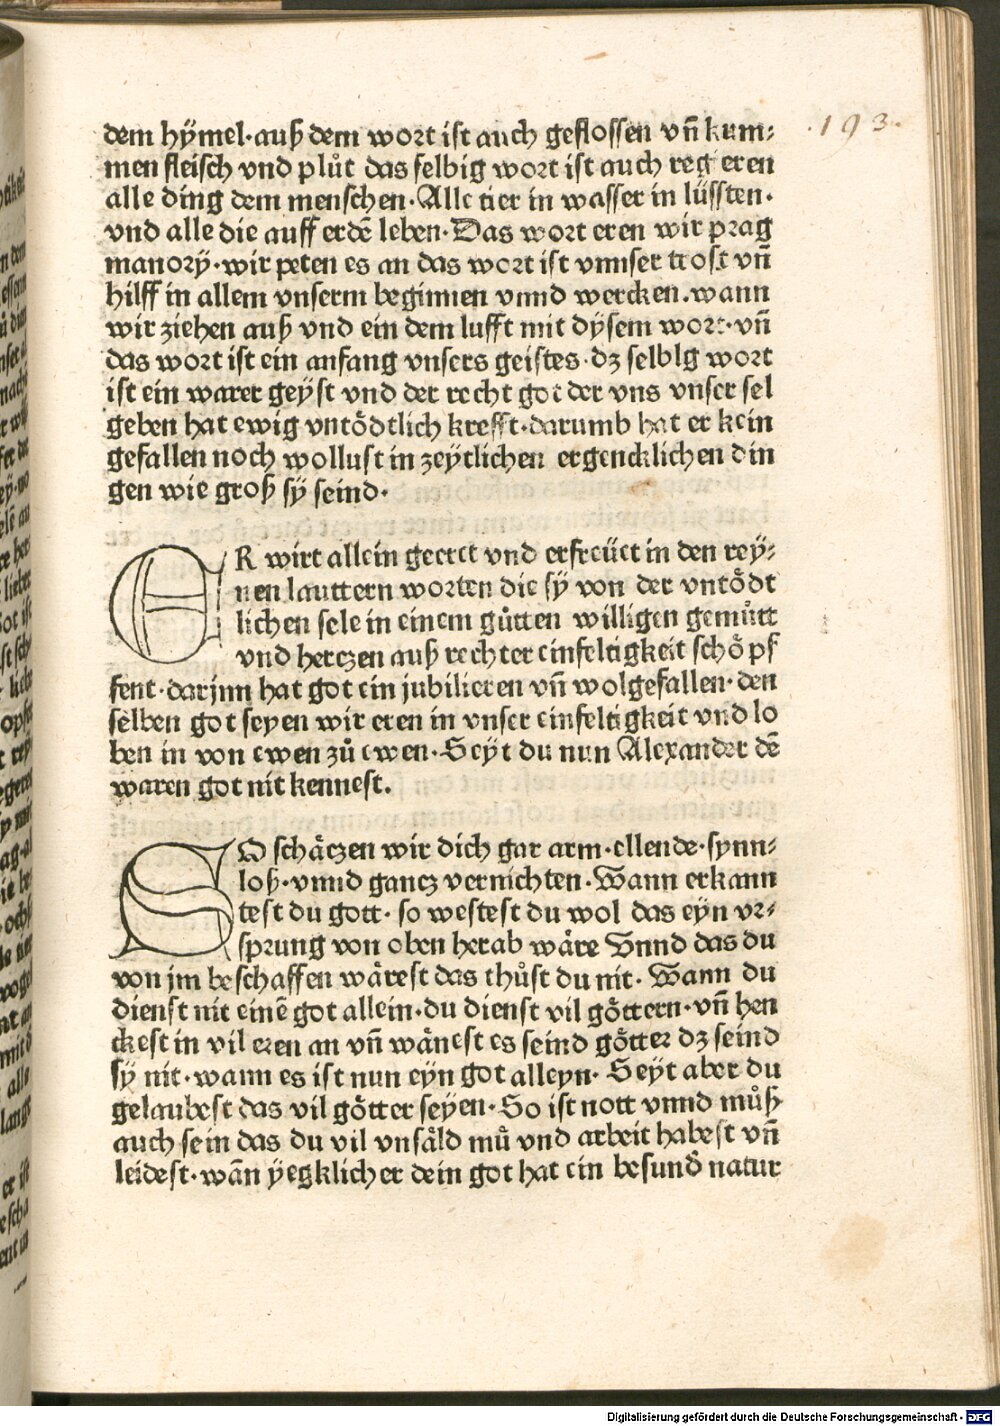 .193.
dem hÿmel·auß dem wort ist auch geflossen vñ kum⸗
men fleisch vnd plůt das selbig wort ist auch regieren
alle ding dem menschen·Alle tier in wasser in lüssten·
vnd alle die auff erdẽ leben·Das wort eren wir prag
manorÿ·wir peten es an das wort ist vnnser trost vñ
hilff in allem vnserm beginnen vnnd wercken.wann
wir ziehen auß vnd ein dem lufft mit dÿsem wort·vñ
das wort ist ein anfang vnsers geistes·dz selblg wort
ist ein warer geÿst vnd der recht got der vns vnser sel
geben hat ewig vntödtlich krefft·darumb hat er kein
gefallen noch wollust in zeÿtlichen ergencklichen din
gen wie groß sÿ seind·
ER wirt allein geeret vnd erfreüet in den reÿ⸗
nen lauttern worten die sÿ von der vntödt
lichen sele in einem gůtten willigen gemůtt
vnd herczen auß rechter einfeltigkeit schöpf
fent·darjnn hat got ein jubilieren vñ wolgefallen·den
selben got seyen wir eren in vnser einfeltigkeit vnd lo
ben in von ewen zů ewen·Seÿt du nun Alexander dẽ
waren got nit kennest.
SO schäczen wir dich gar arm·ellende·synn⸗
loß·vnnd gancz vernichten·Wann erkann
test du gott·so westest du wol das eÿn vr⸗
sprung von oben herab wäre Vnnd das du
von jm beschaffen wärest das thůst du nit·Wann du
dienst nit einẽ got allein·du dienst vil göttern·vñ hen
ckest in vil eren an vñ wänest es seind götter dz seind
sÿ nit·wann es ist nun eÿn got alleyn·Seÿt aber du
gelaubest das vil götter seyen·So ist nott vnnd můß
auch sein das du vil vnsäld mů vnd arbeit habest vñ
leidest·wãn ÿegklicher dein got hat ein besundˀ natur
Digitalisierung gefördert durch die Deutsche Forschungsgemeinschaft - DFG